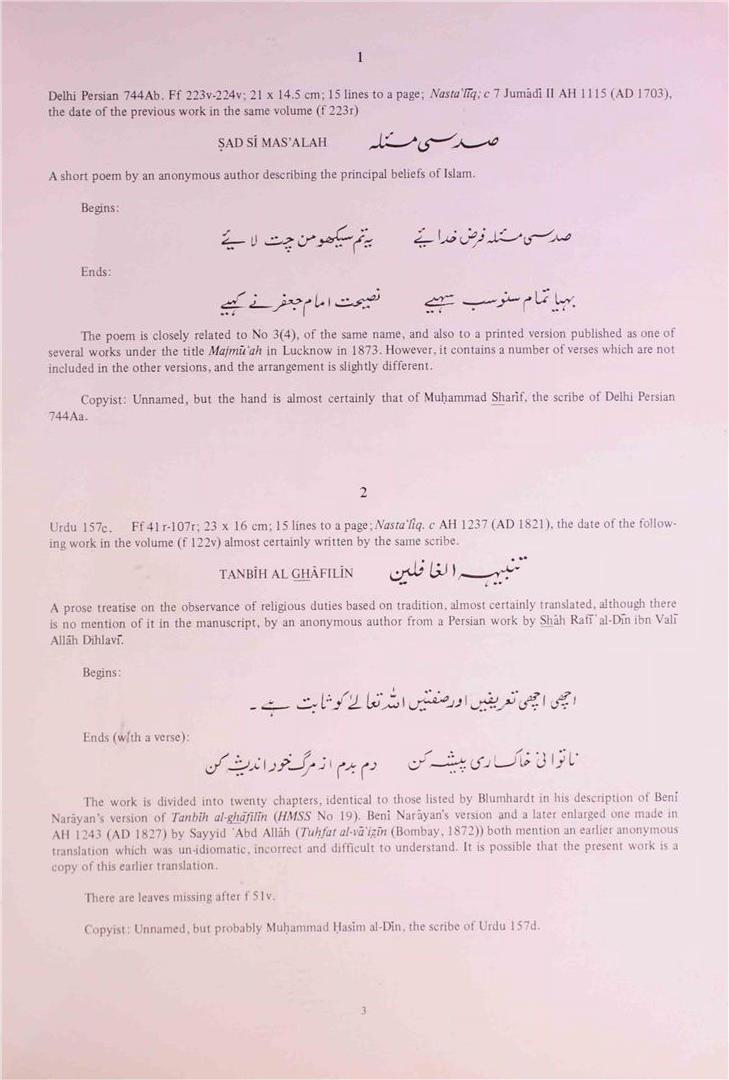 1
Delhi Persian 744Ab. Ff 223v-224v; 21 x 14.5 cm; 15 lines to a page; Nasta'līq; c 7 Jumādī II AH 1115 (AD 1703),
the date of the previous work in the same volume (f 223r)
ṢAD SĪ MAS'ALAH صدسی مسئلہ
A short poem by an anonymous author describing the principal beliefs of Islam.
Begins:
صدسی مسئلہ فرض خدائے یہ تم سیکھو من چت لائے
Ends:
بہیا تمام سنو سب سہیے نصیحت امام جعفر نے کہیے
The poem is closely related to No 3(4), of the same name, and also to a printed version published as one of
several works under the title Majmū'ah in Lucknow in 1873. However, it contains a number of verses which are not
included in the other versions, and the arrangement is slightly different.
Copyist: Unnamed, but the hand is almost certainly that of Muḥammad Sharīf, the scribe of Delhi Persian
744Aa.
2
Urdu 157c. Ff 41r-107r; 23 x 16 cm; 15 lines to a page; Nasta'līq. c AH 1237 (AD 1821), the date of the follow-
ing work in the volume (f 122v) almost certainly written by the same scribe.
TANBĪH AL GHĀFILĪN تنبیہہ الغافلین
A prose treatise on the observance of religious duties based on tradition, almost certainly translated, although there
is no mention of it in the manuscript, by an anonymous author from a Persian work by Shāh Rafī' al-Dīn ibn Valī
Allāh Dihlavī.
Begins:
اچھی اچھی تعریفیں اور صفتیں اللہ تعالےٰ کو ثابت ہے ۔
Ends (with a verse):
ناتوانی خاکساری پیشہ کن دم بدم از مرگ خود اندیشہ کن
The work is divided into twenty chapters, identical to those listed by Blumhardt in his description of Benī
Narāyan's version of Tanbīh al-ghāfilīn (HMSS No 19). Benī Narāyan's version and a later enlarged one made in
AH 1243 (AD 1827) by Sayyid 'Abd Allāh (Tuḥfat al-vā'iẓīn (Bombay, 1872)) both mention an earlier anonymous
translation which was un-idiomatic, incorrect and difficult to understand. It is possible that the present work is a
copy of this earlier translation.
There are leaves missing after f 51v.
Copyist: Unnamed, but probably Muḥammad Ḥasīm al-Dīn, the scribe of Urdu 157d.
3